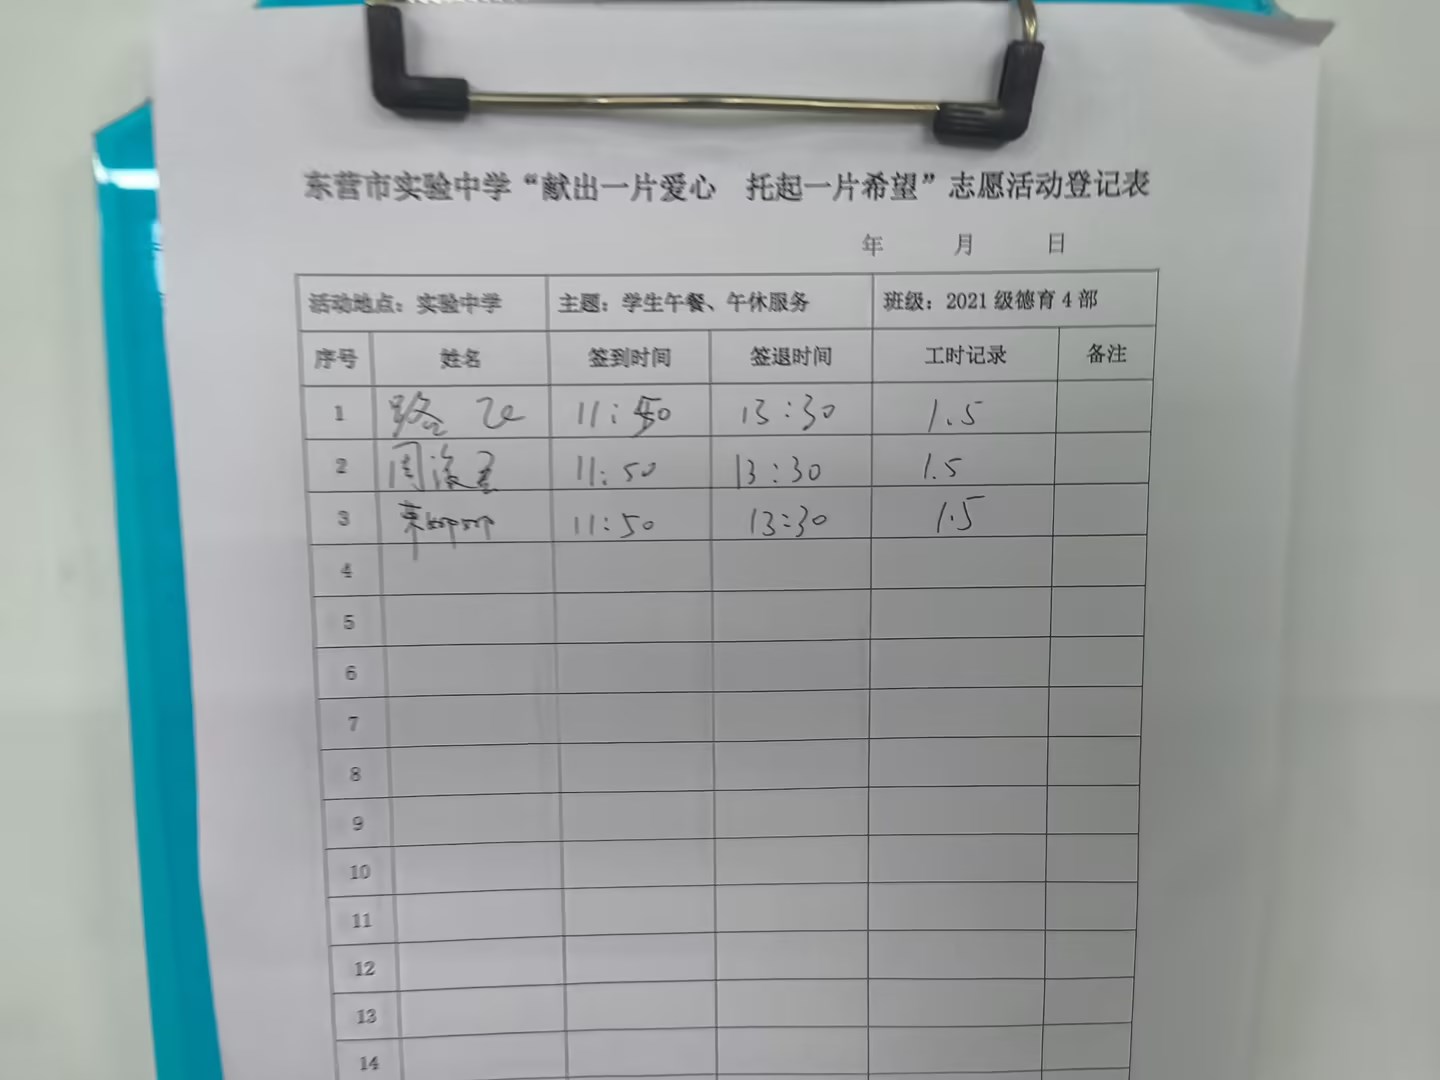 东营市实验中学“献出一片爱心 托起一片希望”志愿活动登记表
年 月 日
活动地点：实验中学 主题：学生午餐、午休服务 班级：2021级德育4部
序号 姓名 签到时间 签退时间 工时记录 备注
1 路 11:50 13:30 1.5
2 周 11:50 13:30 1.5
3 11:50 13:30 1.5
4
5
6
7
8
9
10
11
12
13
14